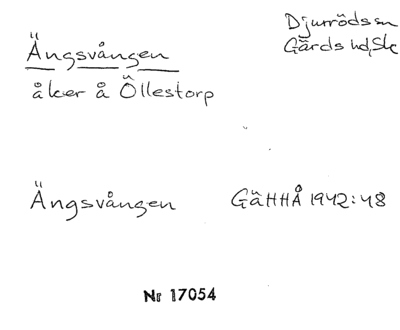 Djurröds sn
Gärds hd, Sk
Ängsvången
åker å Öllestorp
Ängsvången GäHHÅ 1942:48
Nr 17054